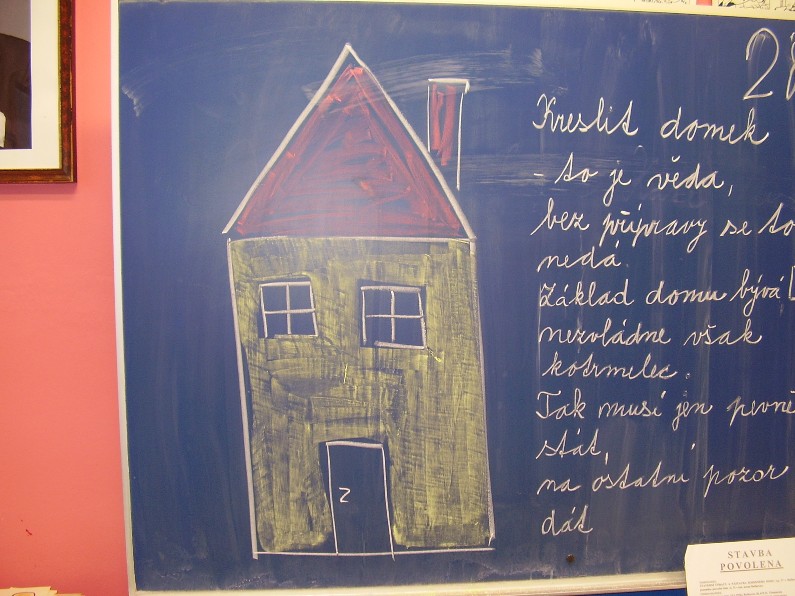 Kreslit domek
- to je věda,
bez přípravy se to
nedá.
Základ domu bývá
nezvládne však
kotrmelec.
Tak musí jen pevně
stát,
na ostatní pozor
dát
2
STAVBA
POVOLENA